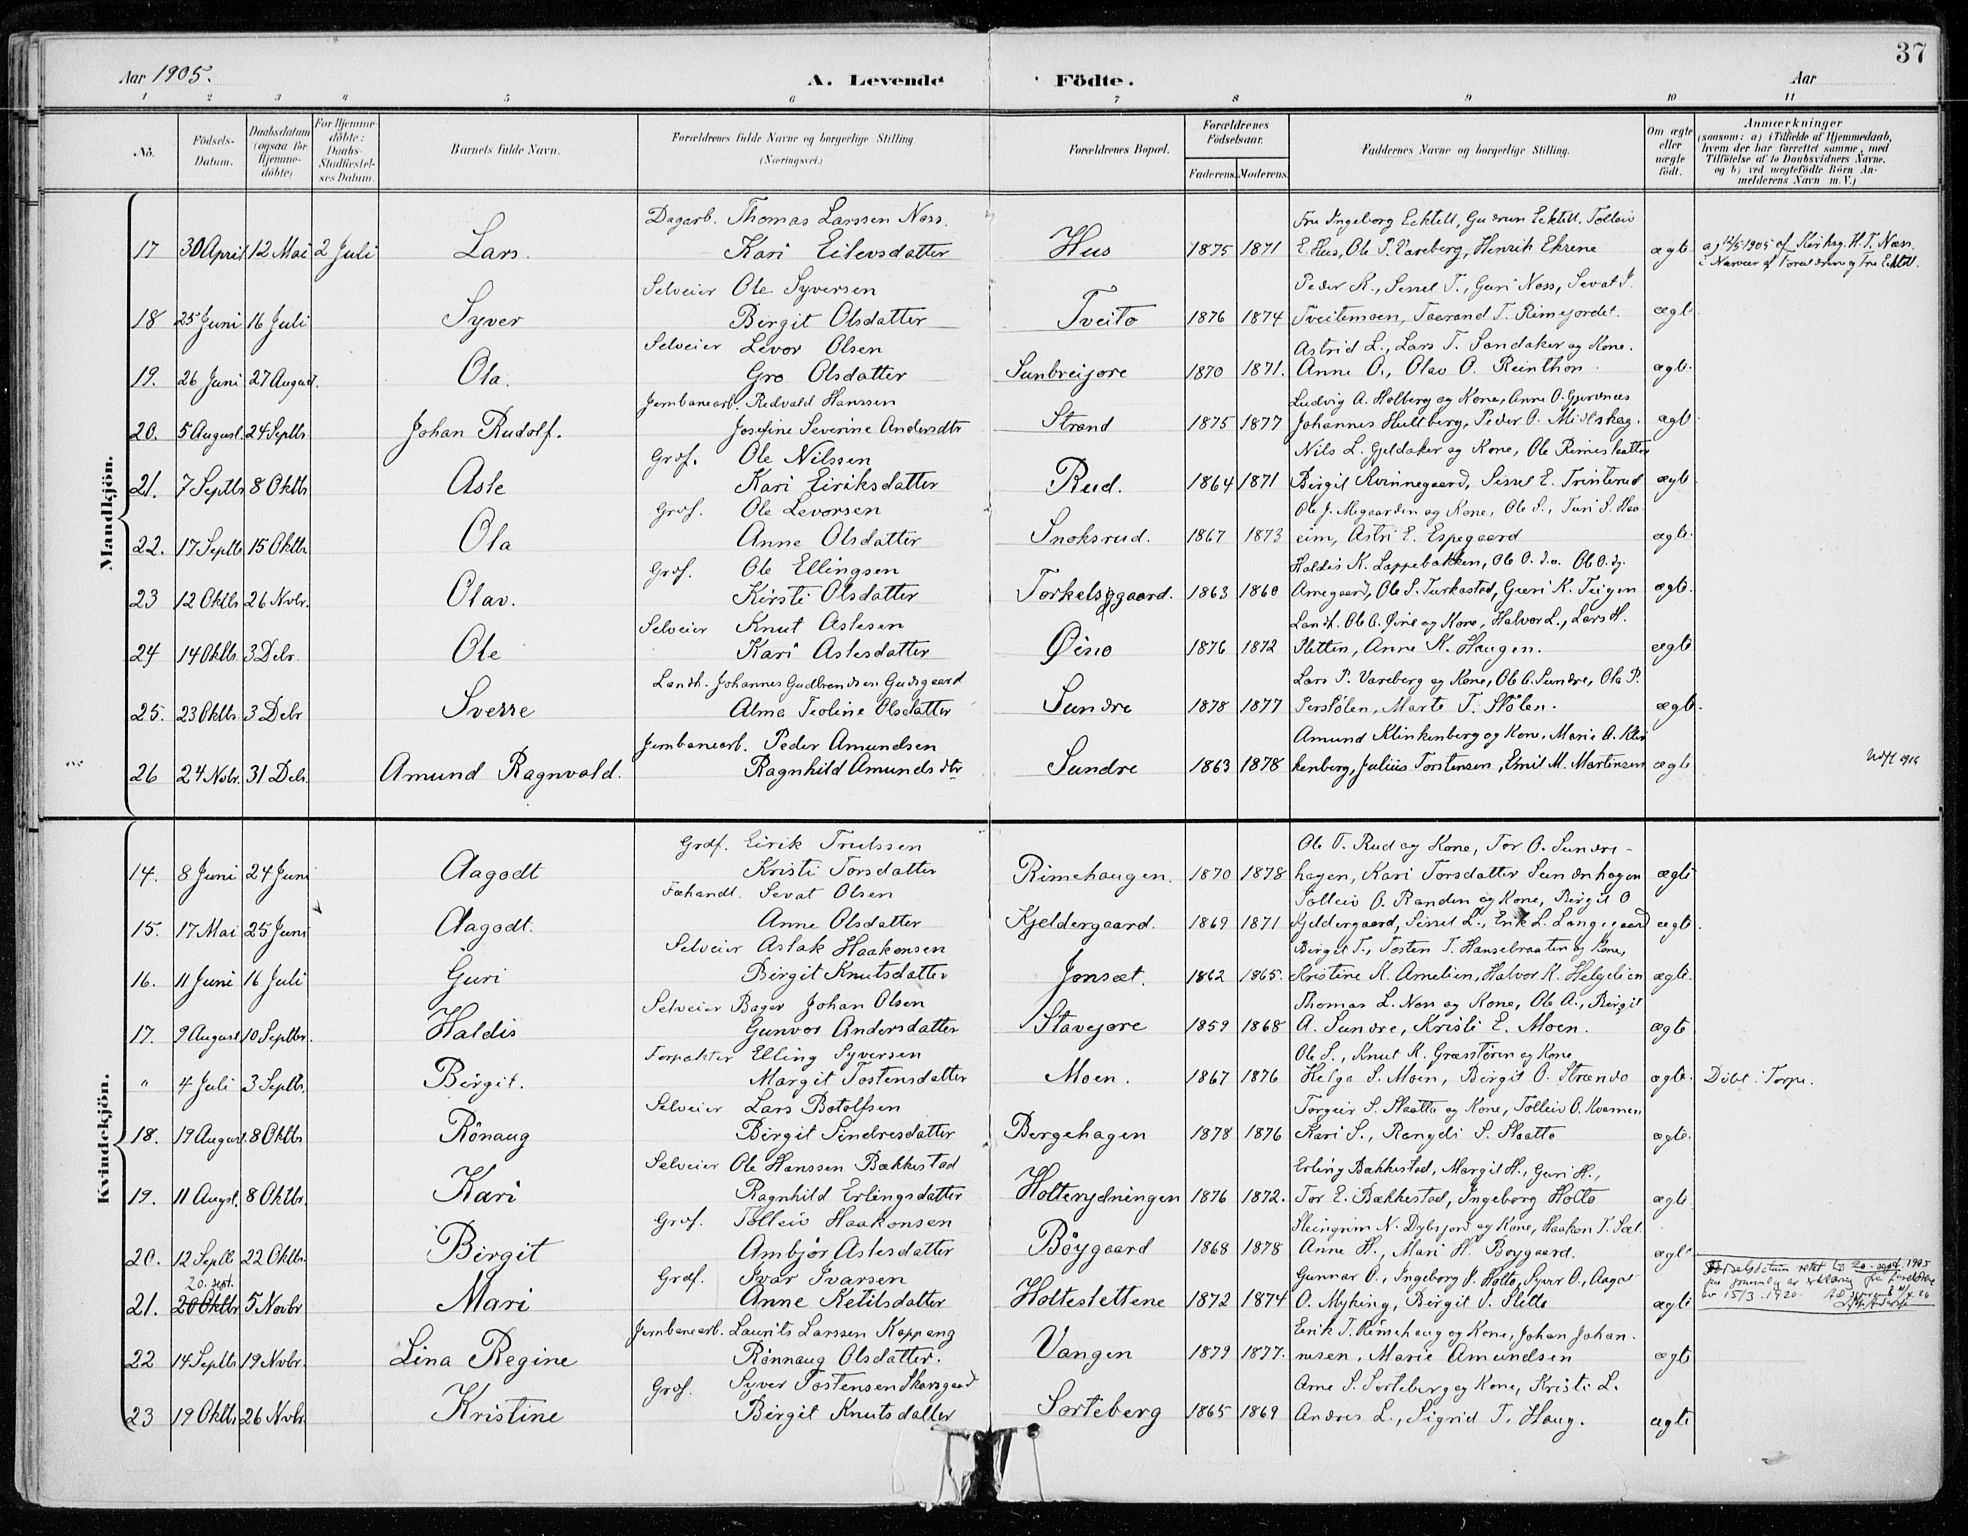 37
Aar 1905. A. Levende Födte. Aar
1 2 3 4 5 6 7 8 9 10 11
No. Födsels-Datum. Daabsdatum (ogsaa for Hjemmedöbte) For Hjemmedöbte: Daabs-Stadfæstelses Datum. Barnets fulde Navn. Forældrenes fulde Navne og borgerlige Stilling (Næringsvei.) Forældrenes Bopæl. Forældrenes Födselsaar. Faderens. Moderens. Faddernes Navne og borgerlige Stilling. Om ægte eller uægte födt. Anmærkninger (saasom: a) i Tilfælde af Hjemmedaab, hvem der har forrettet samme, med Tilföielse af to Daabsvidners Navne. og b) ved uægtefödte Börn Anmelderens Navn m. V.)
Mandkjön.
Dagarb. Thomas Larssen Næss. Fru Ingeborg Ecktell, Gudrun Ecktell, Tolleiv
17 30 April 12 Mai 2 Juli Lars. Kari Eilevsdatter Hus 1875 1871 E. Hus, Ole P. Vareberg, Henrik Ekrene ægte a) 12/5 1905 af Kirkesg. H. T. Næss.
i Nærvær af Forældrene og Fru Ecktell.
Selveier Ole Syversen Peder K., Sissel T., Guri Næss, Sevat J.
18 25 Juni 16 Juli Syver Birgit Olsdatter Tveito 1876 1874 Tveitemoen, Taarand T. Rimejordet. ægte
Selveier Levor Olsen Astrid L., Lars T. Sandaker og Kone.
19. 26 Juni 27 August. Ola. Gro Olsdatter Sunbreijore 1870 1871. Anne O., Olav O. Reinthon ægte.
Jernbanearb. Redvald Hanssen Ludvig A. Holberg og Kone, Anne O. Gjerdnæs
20. 5 August. 24 Septbr. Johan Rudolf. Josefine Severine Andersdtr Strand 1875 1877 Johannes Hultberg, Peder O. Midtskog. ægt
Grdf. Ole Nilssen Nils L. Gjeldaker og Kone, Ole Rimeslaatten
21. 7 Septbr 8 Oktbr Asle Kari Eiriksdatter Rud. 1864 1871 Birgit Kvinnegaard, Sissel E. Trinterud ægte
Grdf. Ole Levorsen Ole J. Megaarden og Kone, Ole S., Turi S. Haa-
22. 17 Septbr 15 Oktbr. Ola Anne Olsdatter Snoksrud. 1867 1873 eim, Astri E. Espegaard ægte.
Grdf. Ole Ellingsen Haldis K. Lappebakken, Ole O. d. æ. Ole O. d. y.
23 12 Oktbr 26 Novbr. Olav. Kirsti Olsdatter Torkelsgaard. 1863 1860 Arnegaard, Ole S. Turkastad, Guri K. Teigen ægte.
Selveier Knut Aslesen Landh. Ole O. Øino og Kone, Halvor L., Lars H.
24 14 Oktbr. 3 Debr. Ole Kari Aslesdatter Øino 1876 1872 Sletten, Anne K. Haugen. ægte
Landh. Johannes Gudbrandsen Gudsgaard Lars P. Vareberg og Kone, Ole O. Sundre, Ole P.
25. 23 Oktbr. 3 Debr Sverre Alma Teoline Olsdatter Sundre 1878 1877 Perstölen, Marte T. Stölen. ægte.
Jernbanearb. Peder Amundsen Amund Klinkenberg og Kone, Marie A. Klin
26 24 Nobr. 31 Debr. Amund Ragnvald. Ragnhild Amundsdtr Sundre 1863 1878 kenberg, Julius Torstensen, Emil M. Martinsen ægte
Kvindekjön.
Grdf. Eirik Trulssen Ole T. Rud og Kone, Tor O. Sundre-
14. 8 Juni 24 Juni Aagodt Kristi Torsdatter Rimehaugen. 1870 1878 hagen, Kari Torsdatter Sundrehagen ægte
Fæhandl. Sevat Olsen Tolleiv O. Randen og Kone, Birgit O
15. 17 Mai 25 Juni Aagodt. Anne Olsdatter Kjeldergaard. 1869 1871 Kjeldergaard, Sissel L., Erik L. Langegaard ægte
Selveier Aslak Haakonsen Birgit T., Tosten T. Hansebraaten og Kone,
16. 11 Juni 16 Juli Guri Birgit Knutsdatter Jonsæt. 1862 1865. Kristine K. Arnelien, Halvor K. Helgelien ægte.
Selveier Bager Johan Olsen Thomas L. Næss og Kone, Ole A., Birgit
17. 9 August. 10 Septbr. Haldis Gunvor Andersdatter Stavejore 1859 1868 A. Sundre, Kristi E. Moen. ægte
Torpakter Elling Syversen Ole S., Knut K. Græsstøren og Kone
" 4 Juli 3 Septbr. Birgit. Margit Tostensdatter Moen. 1867 1876 Helge S. Moen, Birgit O. Strando ægte. Döbt i Torpe.
Selveier Lars Botolfsen Torgeir S. Slaatto og Kone, Tolleiv O. Kvamen
18. 19 August. 8 Oktbr Rönaug Birgit Sindresdatter Bergehagen 1878 1876 Kari S., Rangdi S. Slaatto ægte.
Selveier Ole Hanssen Bækkestad Erling Bækkestad, Margit H., Guri H.,
19. 11 Augst. 8 Oktbr. Kari Ragnhild Erlingsdatter Holterydningen 1876 1872. Tor E. Bækkestad, Ingeborg Holto ægte
Grdf. Tolleiv Haakonsen Steingrim N. Dybsjord og Kone, Haakon T. Sæt.
20. 12 Septb 22 Oktbr. Birgit Ambjør Aslesdatter Böygaard 1868 1878 Anne H., Mari H. Böygaard. ægte
20. sept. Grdf. Ivar Ivarsen Gunnar O., Ingeborg J. Holto, Syver O., Aagot
21. 20 Oktbr 5 Novbr Mari Anne Ketilsdatter Holteslettene 1872 1874 O. Myking, Birgit S. Sletto ægte Födselsdatum rettet til 20. sept. 1905
av 15/3. 1920.
Jernbanearb. Laurits Larssen Koppang Eirik T. Rimehaug og Kone, Johan Johan-
22 14 Septbr 19 Novbr. Lina Regine Rönnaug Olsdatter. Vangen 1879 1877. nesen, Marie Amundsen ægte
Grdf. Syver Tostensen Skarsgaard Arne S. Sorteberg og Kone, Kristi L.
23 19 Oktbr 26 Novbr. Kristine Birgit Knutsdatter Sorteberg 1865 1869 Andres L., Sigrid T. Haug. ægte